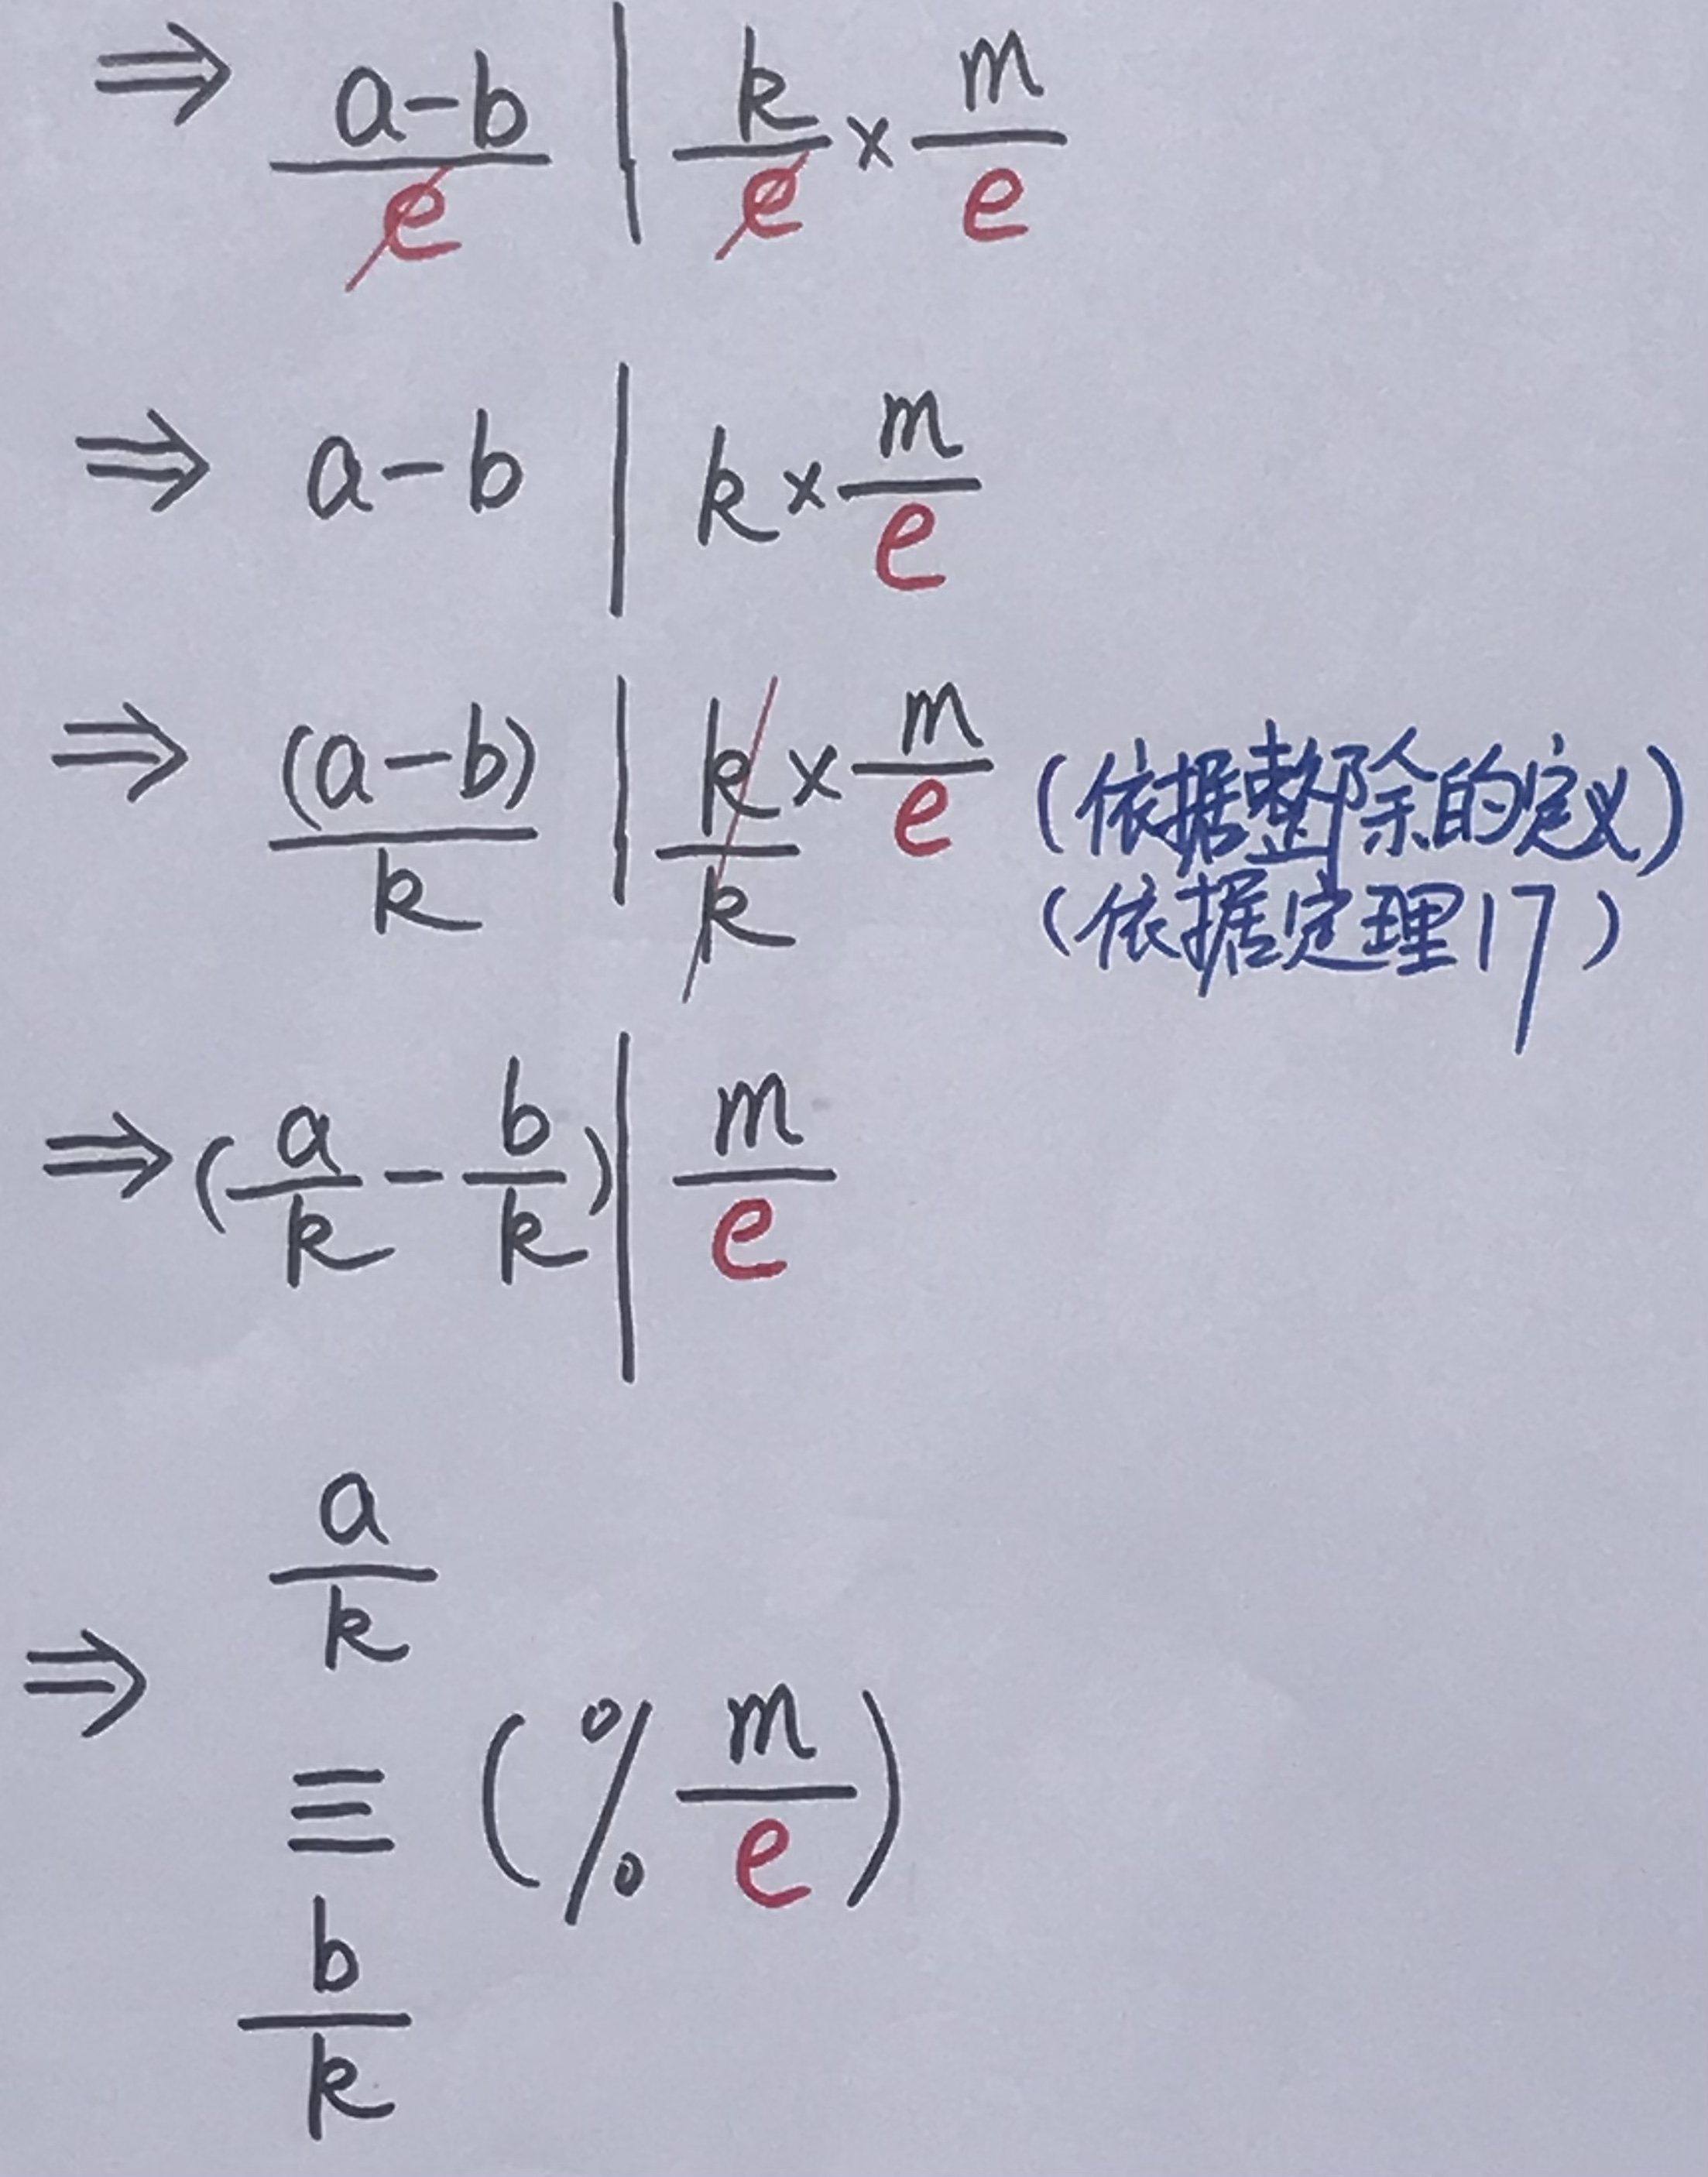 ⇒ a-b/e | k/e × m/e
⇒ a-b | k × m/e
⇒ (a-b)/k | k/k × m/e (依据整除的定义)
(依据定理17)
⇒ (a/k - b/k) | m/e
⇒ a/k
≡ (% m/e)
b/k